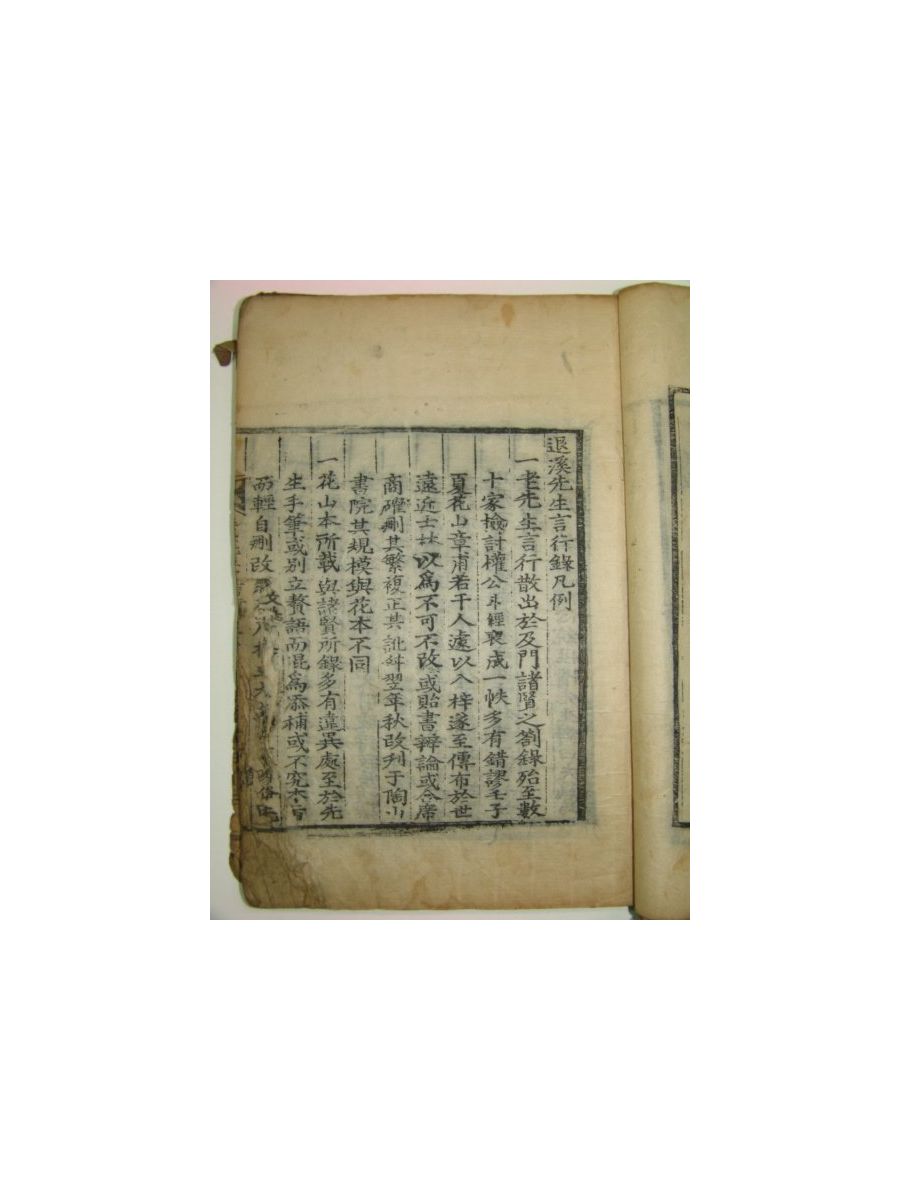 退溪先生言行錄凡例
一老先生言行散出於及門諸賢之劄錄殆至數
十家撿討權公斗經裒成一帙多有錯謬壬子
夏花山章甫若干人遽以入梓遂至傳布於世
遠近士林以爲不可不改或貽書辨論或合席
商確刪其繁複正其訛舛翌年秋改刋于陶山
書院其規模與花本不同
一花山本所載與諸賢所錄多有違異處至於先
生手筆或別立贅語而混爲添補或不究本旨
而輕自刪改